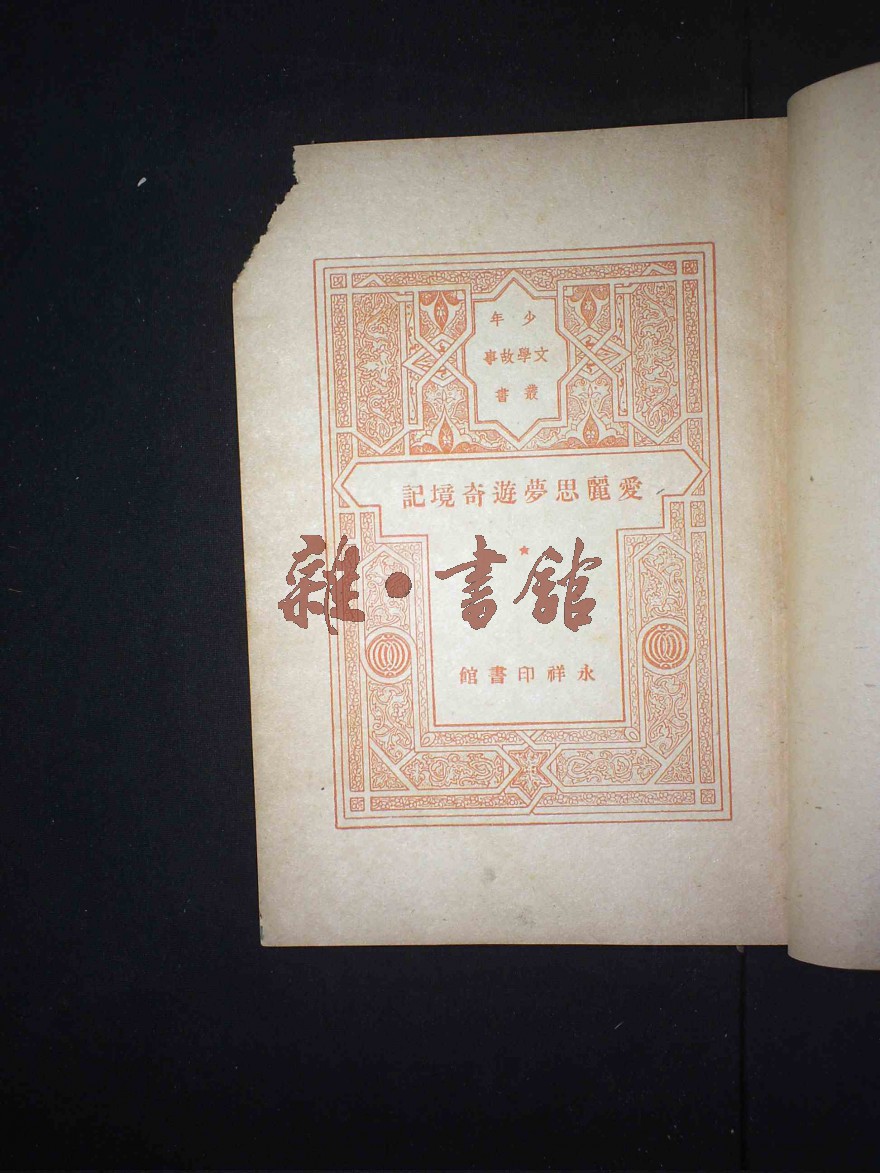 少年
文學故事
叢書
愛麗思夢遊奇境記
★
雜·書館
永祥印書館